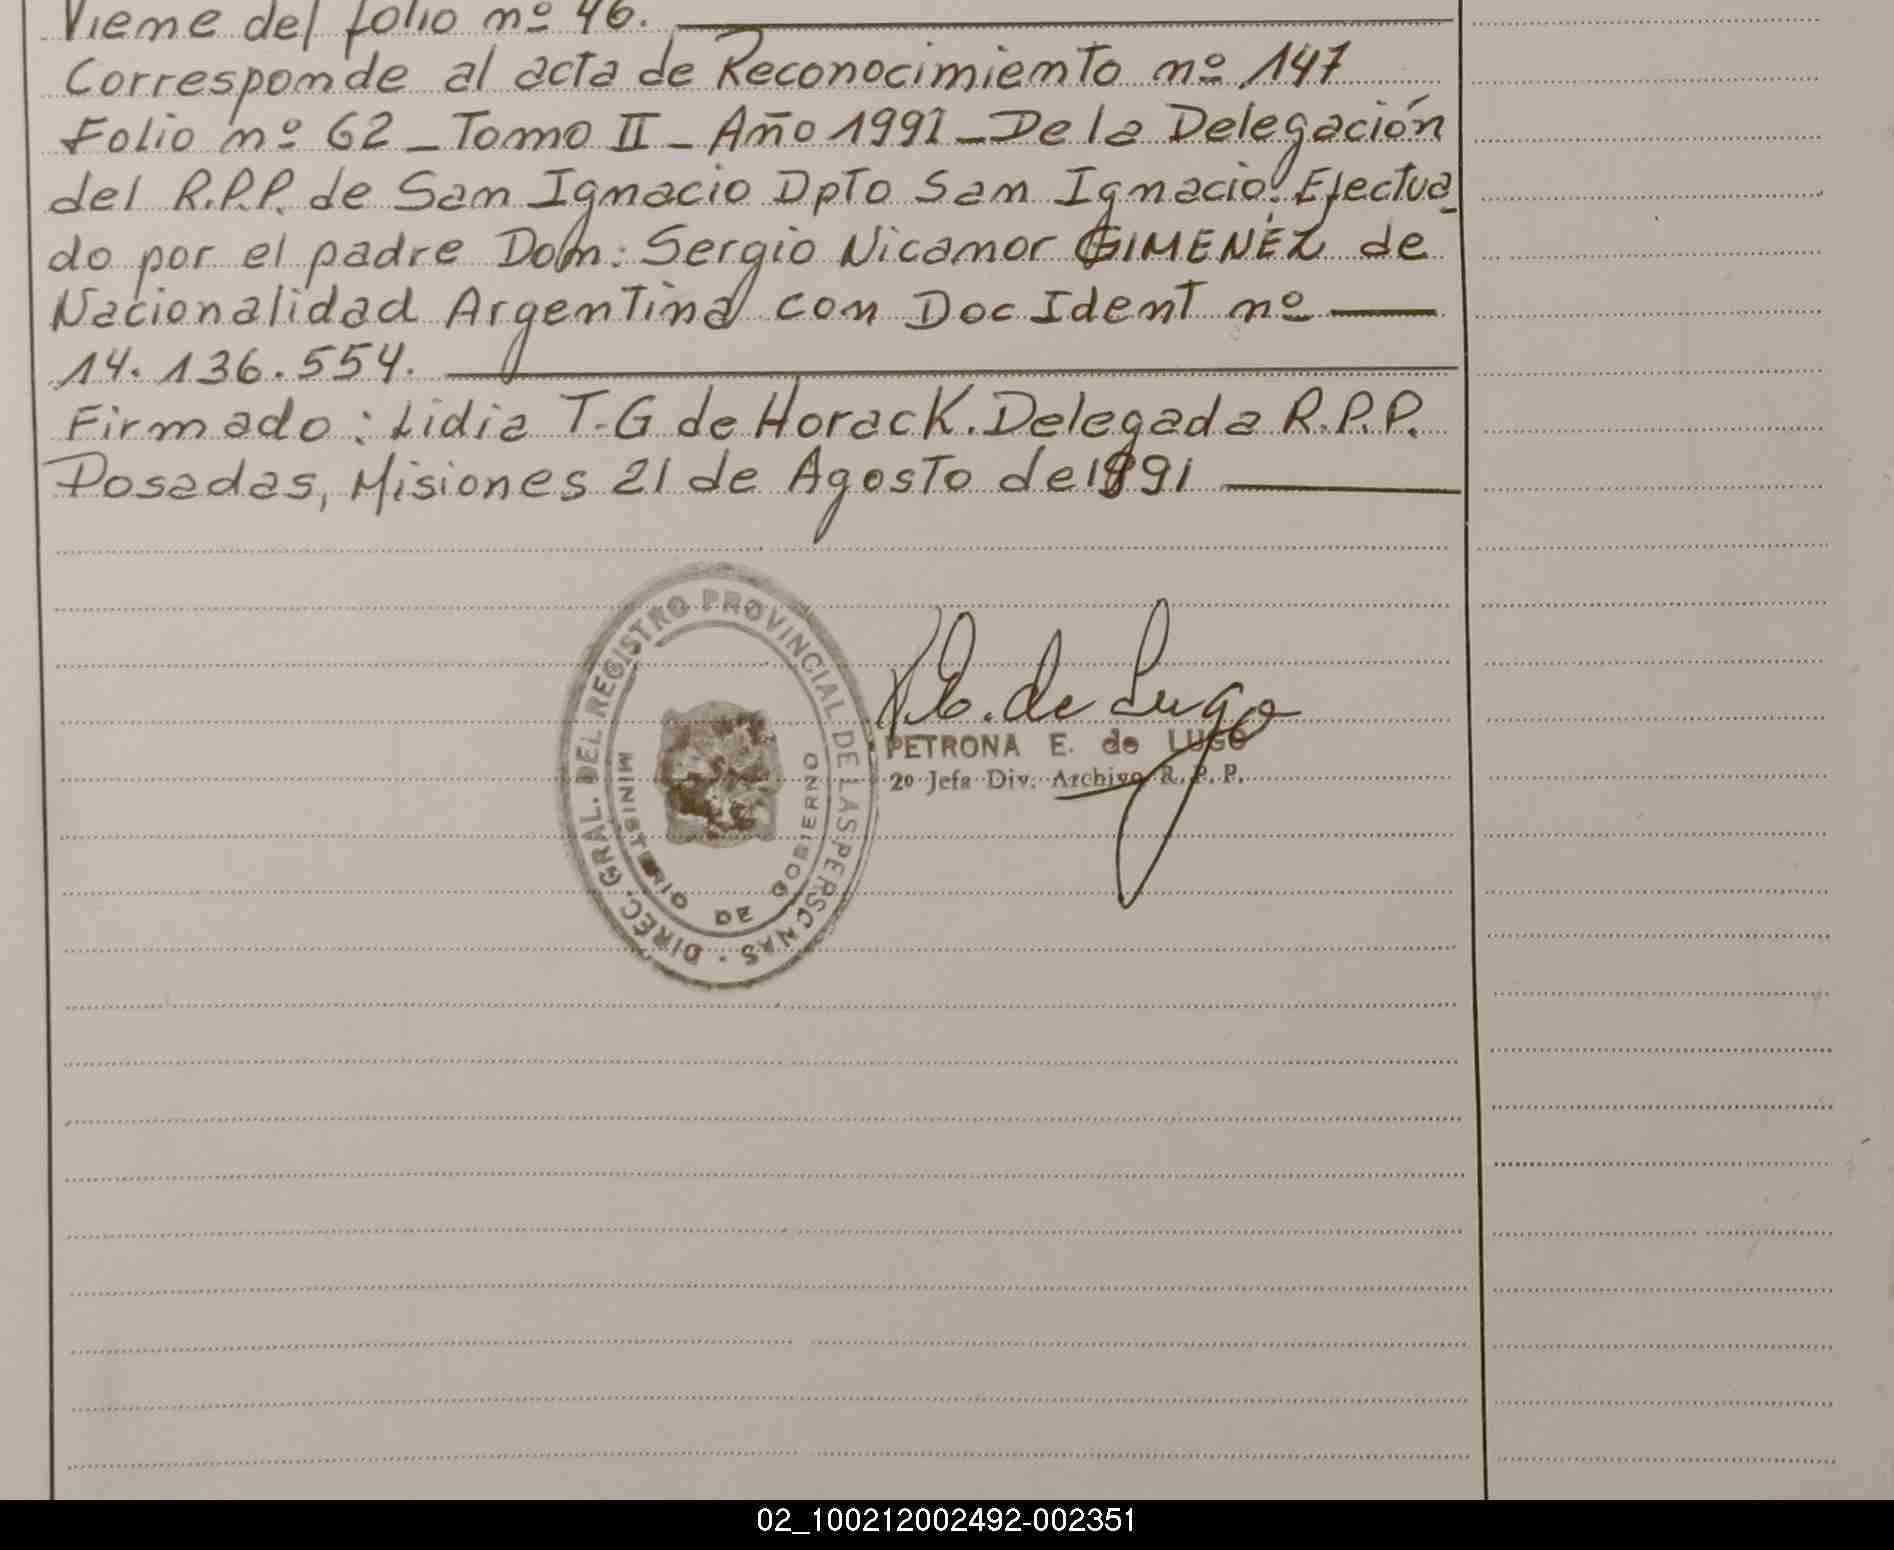 Viene del folio nº 46.
Corresponde al acta de Reconocimiento nº 147
Folio nº 62 - Tomo II - Año 1991 - De la Delegación
del R.P.P. de San Ignacio Dpto San Ignacio. Efectua
do por el padre Dom: Sergio Nicanor GIMENEZ de
Nacionalidad Argentina con Doc Ident nº
14.136.554.
Firmado: Lidia T. G de Horack. Delegada R.P.P.
Posadas, Misiones 21 de Agosto de 1991
DIREC. GRAL. DEL REGISTRO PROVINCIAL DE LAS PERSONAS
MINISTERIO DE GOBIERNO
P.E. de Lugo
PETRONA E. de LUGO
2º Jefa Div. Archivo R. P. P.
02_100212002492-002351